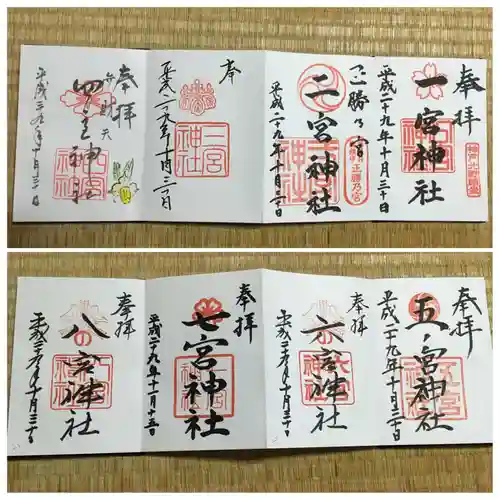 奉拝
一宮神社
平成二十九年十月三十日
正勝乃宮
二宮神社
平成二十九年十月三十日
奉
三宮神社
平成二十九年十月三十日
奉拝
弁財天
四宮神社
平成二九年十月三十一日
奉拝
五ノ宮神社
平成二十九年十月三十日
奉拝
六宮神社
平成二十九年十月三十日
奉拝
七宮神社
平成二十九年十一月十五日
奉拝
八宮神社
平成二十九年十月三十日